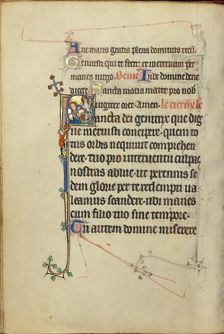 Aue maria gratia plena dominus tecu
manes uirgo. Iube domine dene
Sancta maria mater pro nob
Amen.
Sancta dei genitrix que dig
ne meruisti concipere. quem to
tus orbis nequiuit comprehen
dere. tuo pio interuentu culpas
nostras ablue. ut perennis se
dem glorie per te redempti ua
leamus scandere. ubi manes
cum filio tuo sine tempore.
Tu autem domine miserere